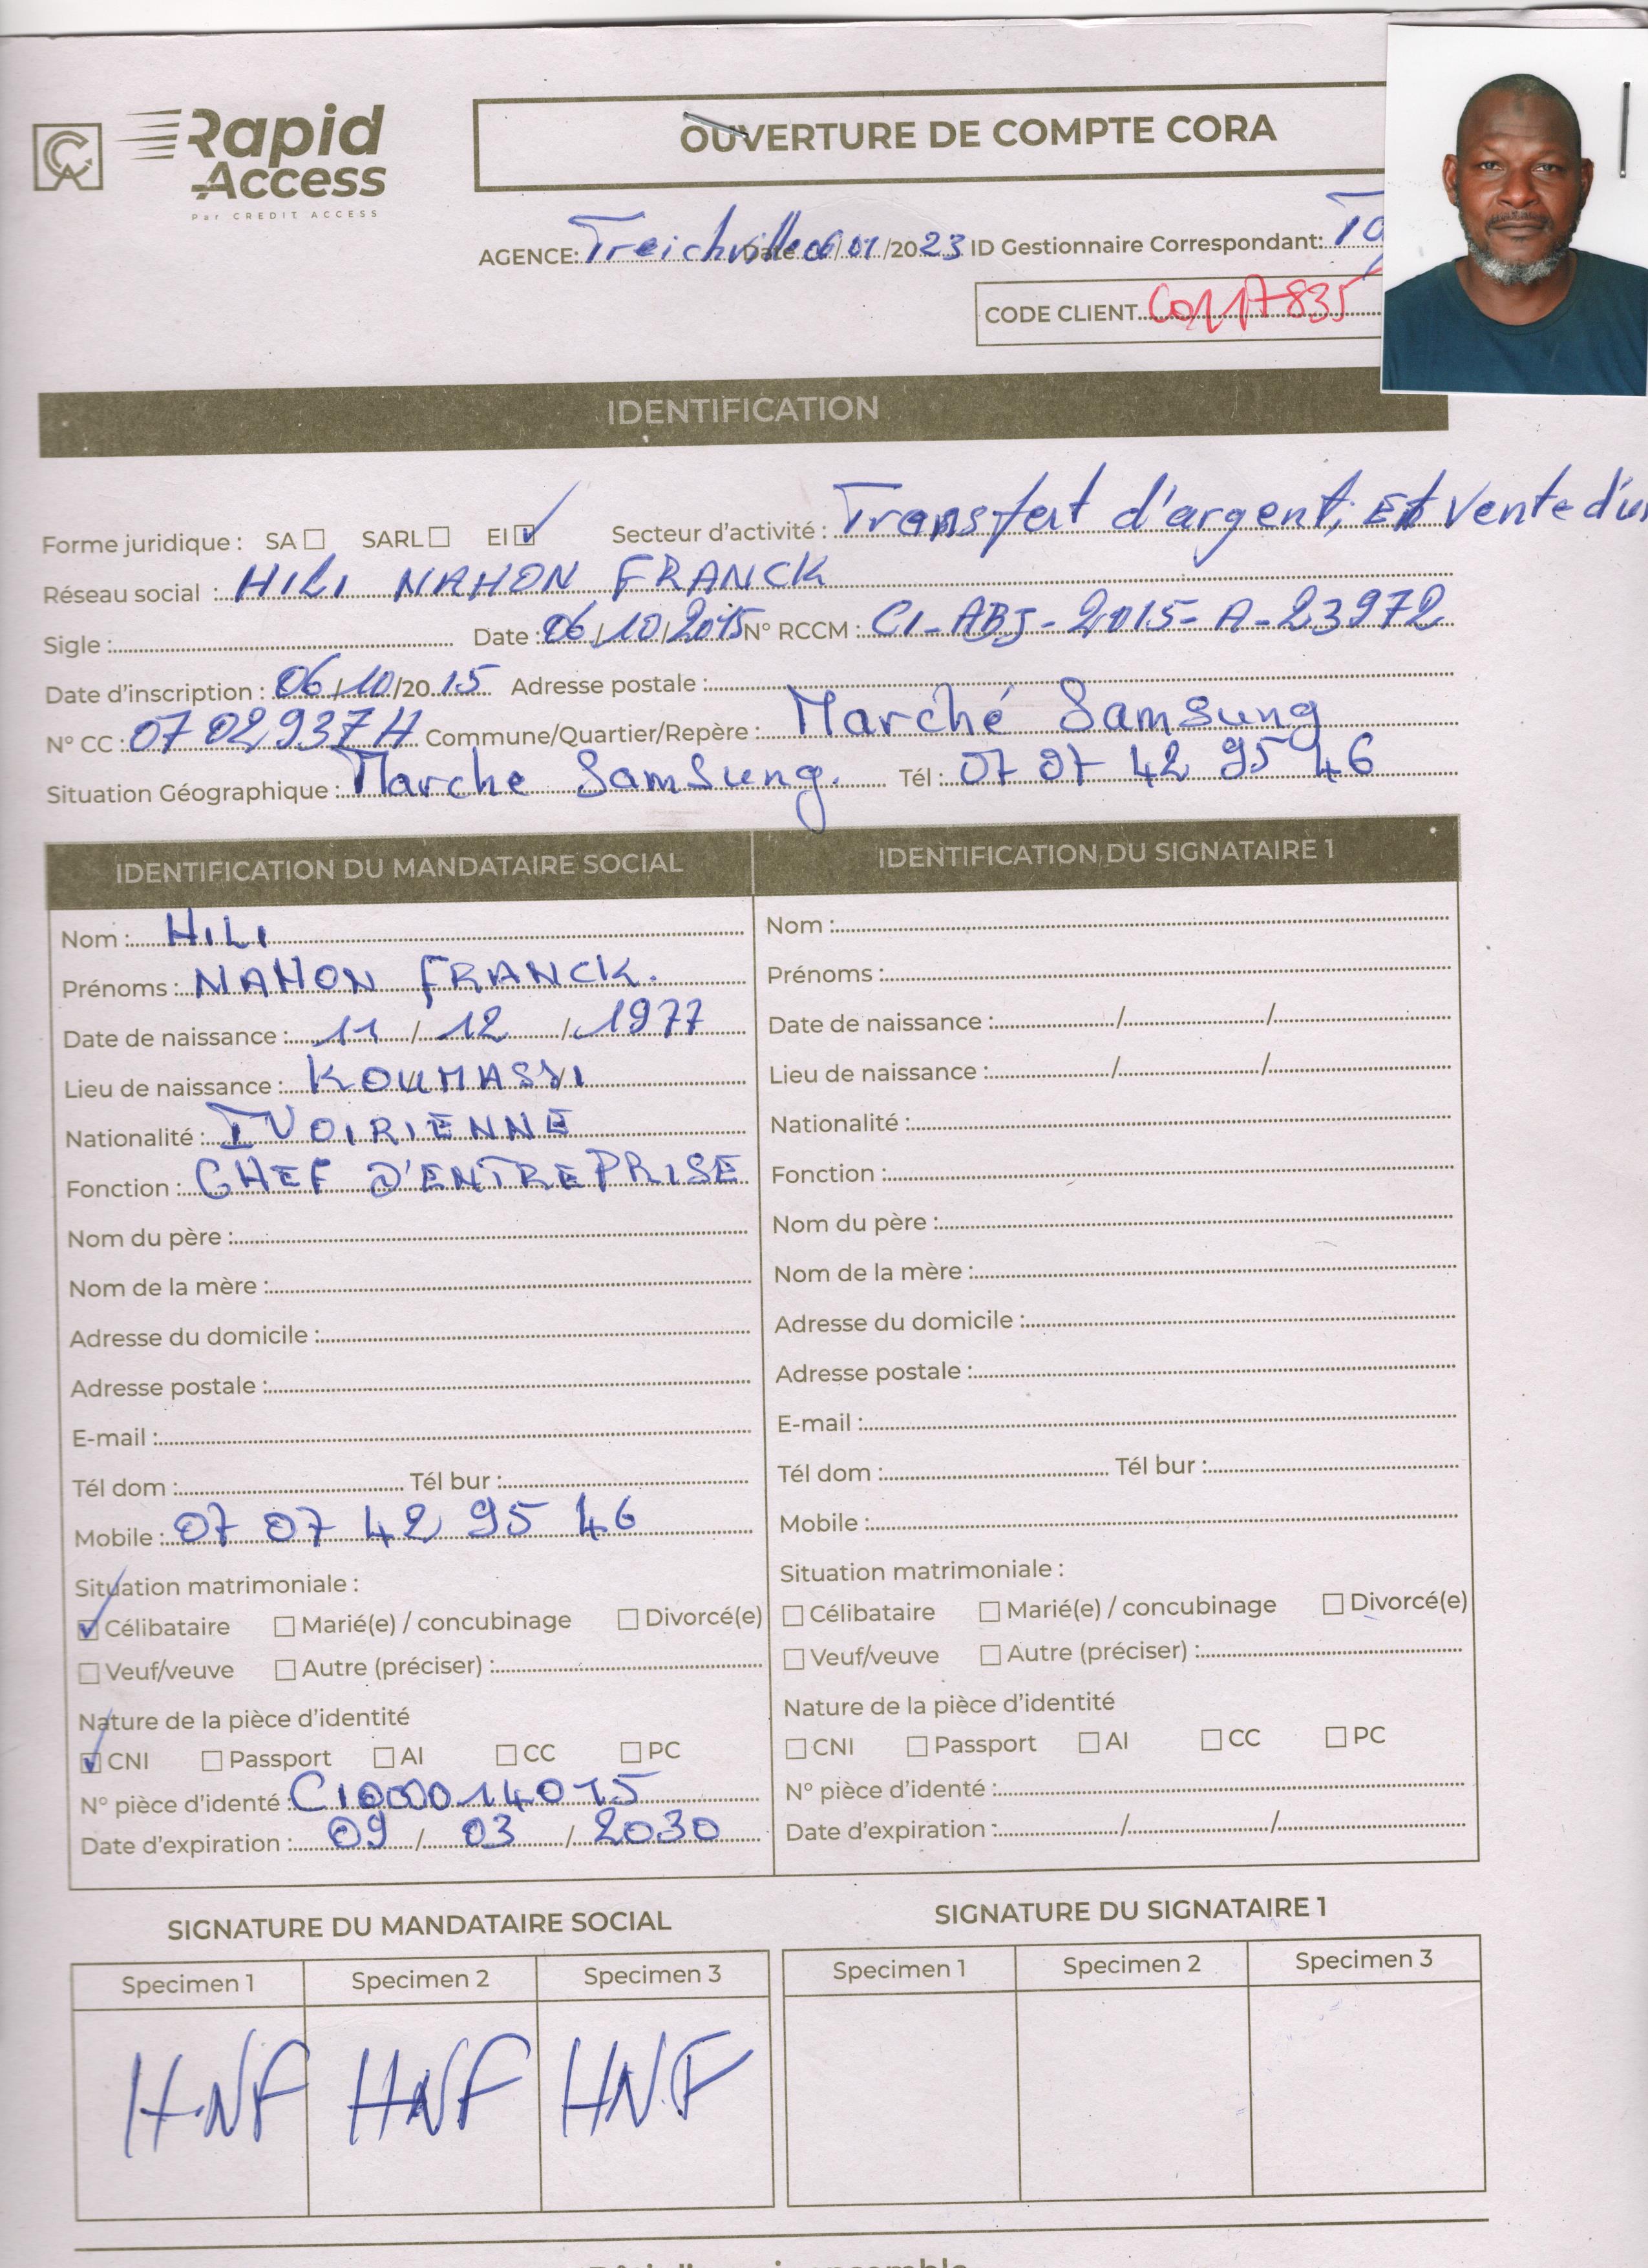 Rapid
Access
Par CREDIT ACCESS
OUVERTURE DE COMPTE CORA
AGENCE: Treichville Date 06/01/2023 ID Gestionnaire Correspondant:
CODE CLIENT
IDENTIFICATION
Forme juridique : SA ☐ SARL ☐ EI ☑ Secteur d'activité : Transfert d'argent, Et Vente
Réseau social : HILI NAHON FRANCK
Sigle : Date : 06/10/2015 N° RCCM : CI-ABJ-2015-A-23972
Date d'inscription : 06/10/2015 Adresse postale :
N° CC : 0702937H Commune/Quartier/Repère : Marché Samsung
Situation Géographique : Marche SamSung. Tél : 07 07 42 95 46
IDENTIFICATION DU MANDATAIRE SOCIAL
Nom : HILI
Prénoms : NAHON FRANCK.
Date de naissance : 11 / 12 / 1977
Lieu de naissance : KOUMASSI
Nationalité : IVOIRIENNE
Fonction : CHEF D'ENTREPRISE
Nom du père :
Nom de la mère :
Adresse du domicile :
Adresse postale :
E-mail :
Tél dom : Tél bur :
Mobile : 07 07 42 95 46
Situation matrimoniale :
☑ Célibataire ☐ Marié(e) / concubinage ☐ Divorcé(e)
☐ Veuf/veuve ☐ Autre (préciser) :
Nature de la pièce d'identité
☑ CNI ☐ Passport ☐ AI ☐ CC ☐ PC
N° pièce d'identé :
Date d'expiration : 09 / 03 / 2030
IDENTIFICATION DU SIGNATAIRE 1
Nom :
Prénoms :
Date de naissance : / /
Lieu de naissance : / /
Nationalité :
Fonction :
Nom du père :
Nom de la mère :
Adresse du domicile :
Adresse postale :
E-mail :
Tél dom : Tél bur :
Mobile :
Situation matrimoniale :
☐ Célibataire ☐ Marié(e) / concubinage ☐ Divorcé(e)
☐ Veuf/veuve ☐ Autre (préciser) :
Nature de la pièce d'identité
☐ CNI ☐ Passport ☐ AI ☐ CC ☐ PC
N° pièce d'identé :
Date d'expiration : / /
SIGNATURE DU MANDATAIRE SOCIAL
Specimen 1 Specimen 2 Specimen 3
H.NF HNF HN.F
SIGNATURE DU SIGNATAIRE 1
Specimen 1 Specimen 2 Specimen 3